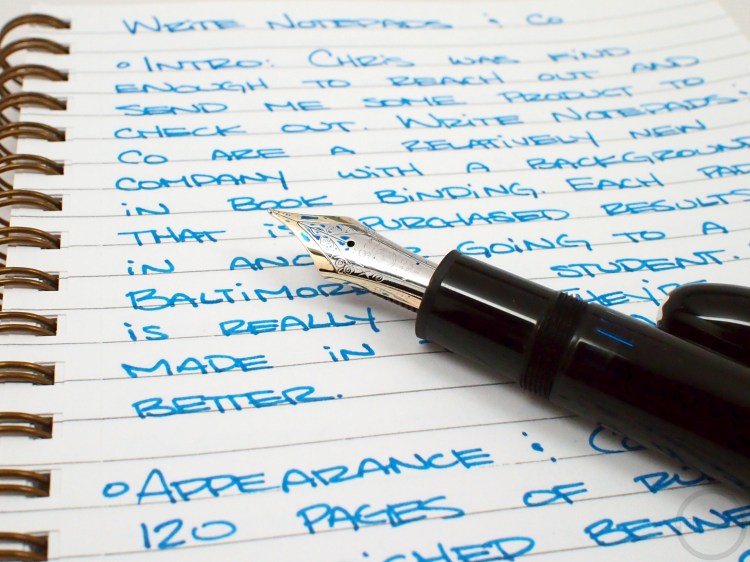 WRITE NOTEPADS & CO
INTRO: CHRIS WAS KIND
ENOUGH TO REACH OUT AND
SEND ME SOME PRODUCT TO
CHECK OUT. WRITE NOTEPADS &
CO ARE A RELATIVELY NEW
COMPANY WITH A BACKGROUND
IN BOOK BINDING. EACH PAD
THAT IS PURCHASED RESULTS
IN GOING TO A
BALTIMORE STUDENT.
IS REALLY
MADE IN
BETTER.
APPEARANCE &
120 PAGES OF